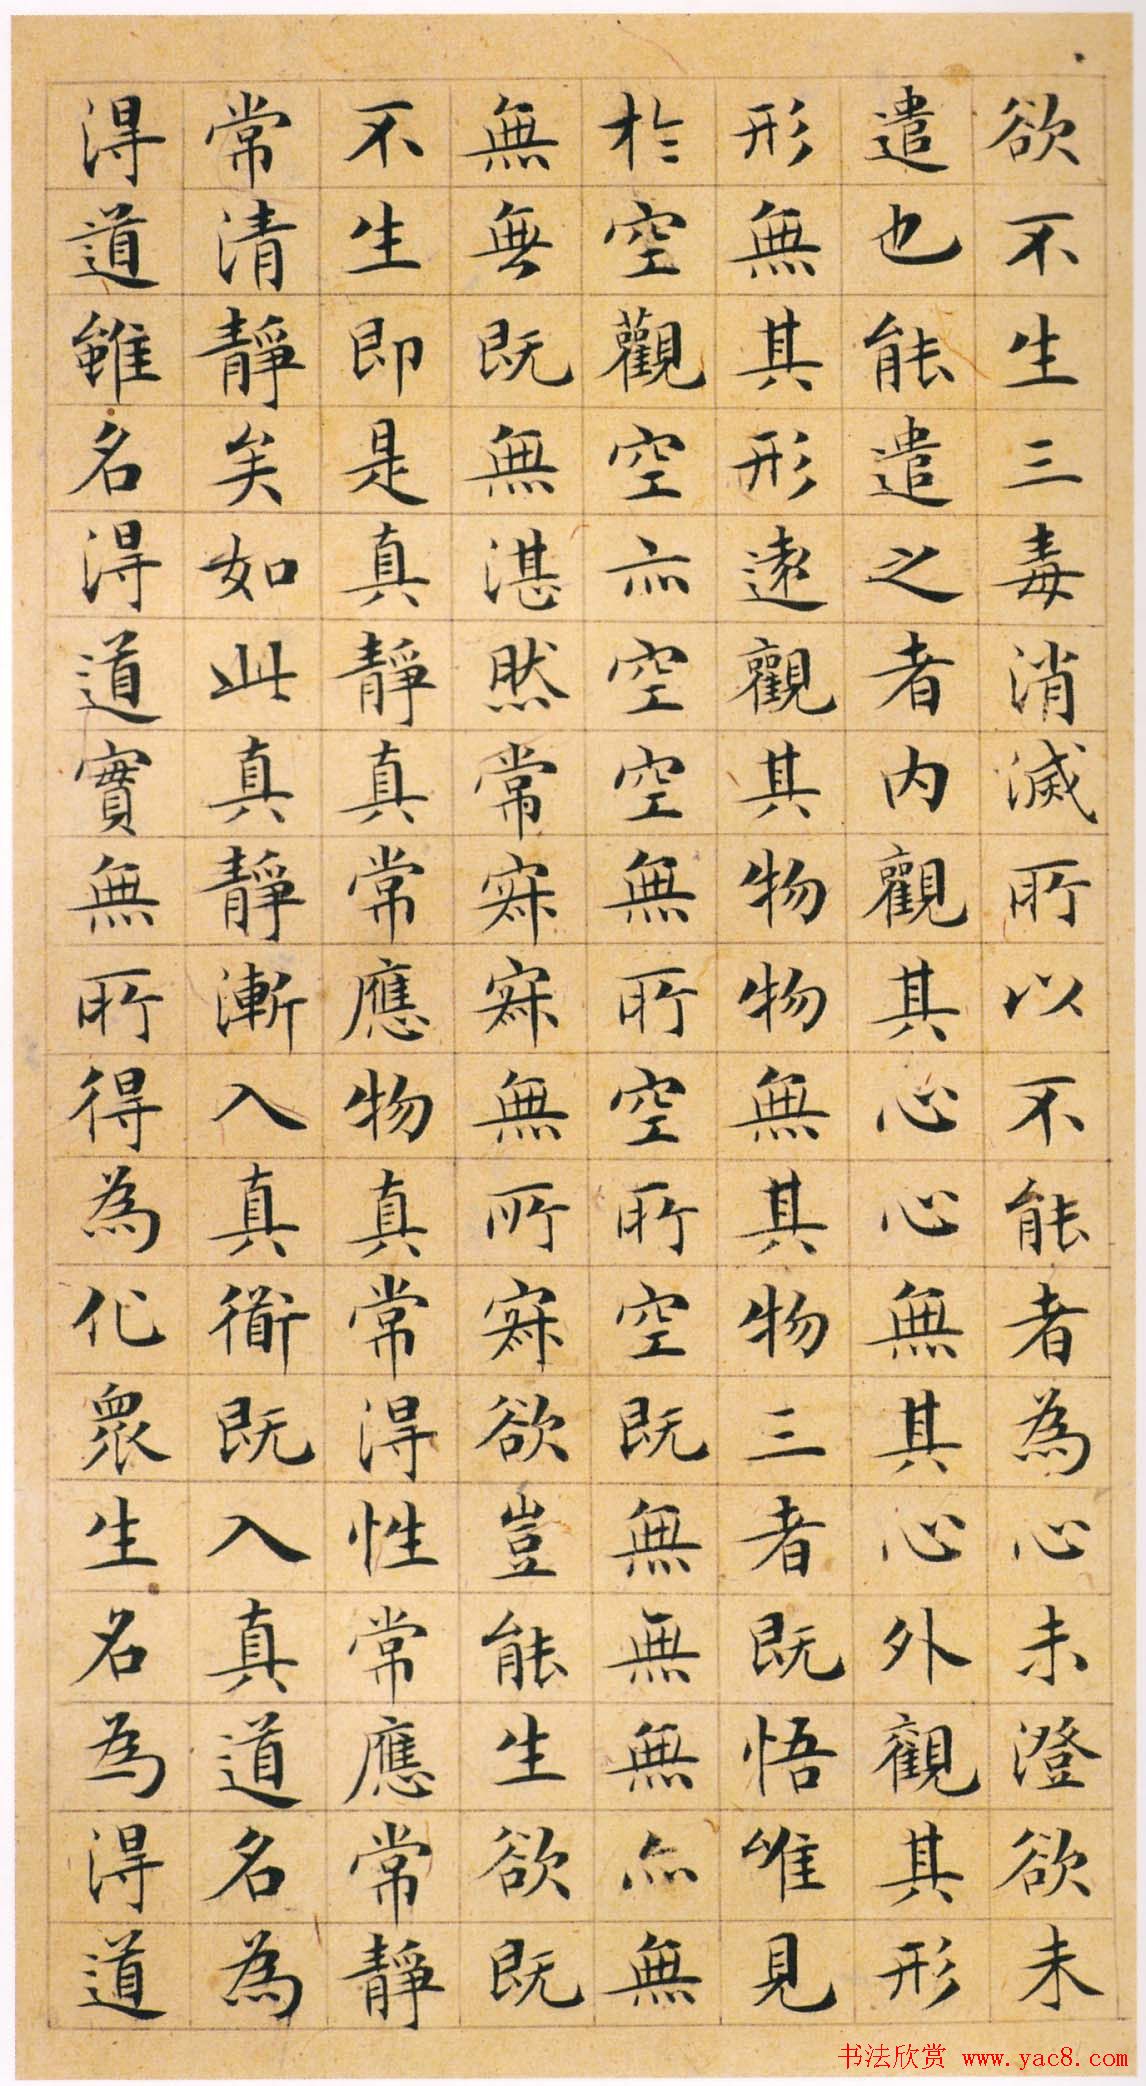 欲不生三毒消滅所以不能者為心未澄欲未
遣也能遣之者內觀其心心無其心外觀其形
形無其形遠觀其物物無其物三者既悟唯見
於空觀空亦空空無所空所空既無無無亦無
無無既無湛然常寂寂無所寂欲豈能生欲既
不生即是真靜真常應物真常得性常應常靜
常清靜矣如此真靜漸入真道既入真道名為
得道雖名得道實無所得為化眾生名為得道
书法欣赏 www.yac8.com